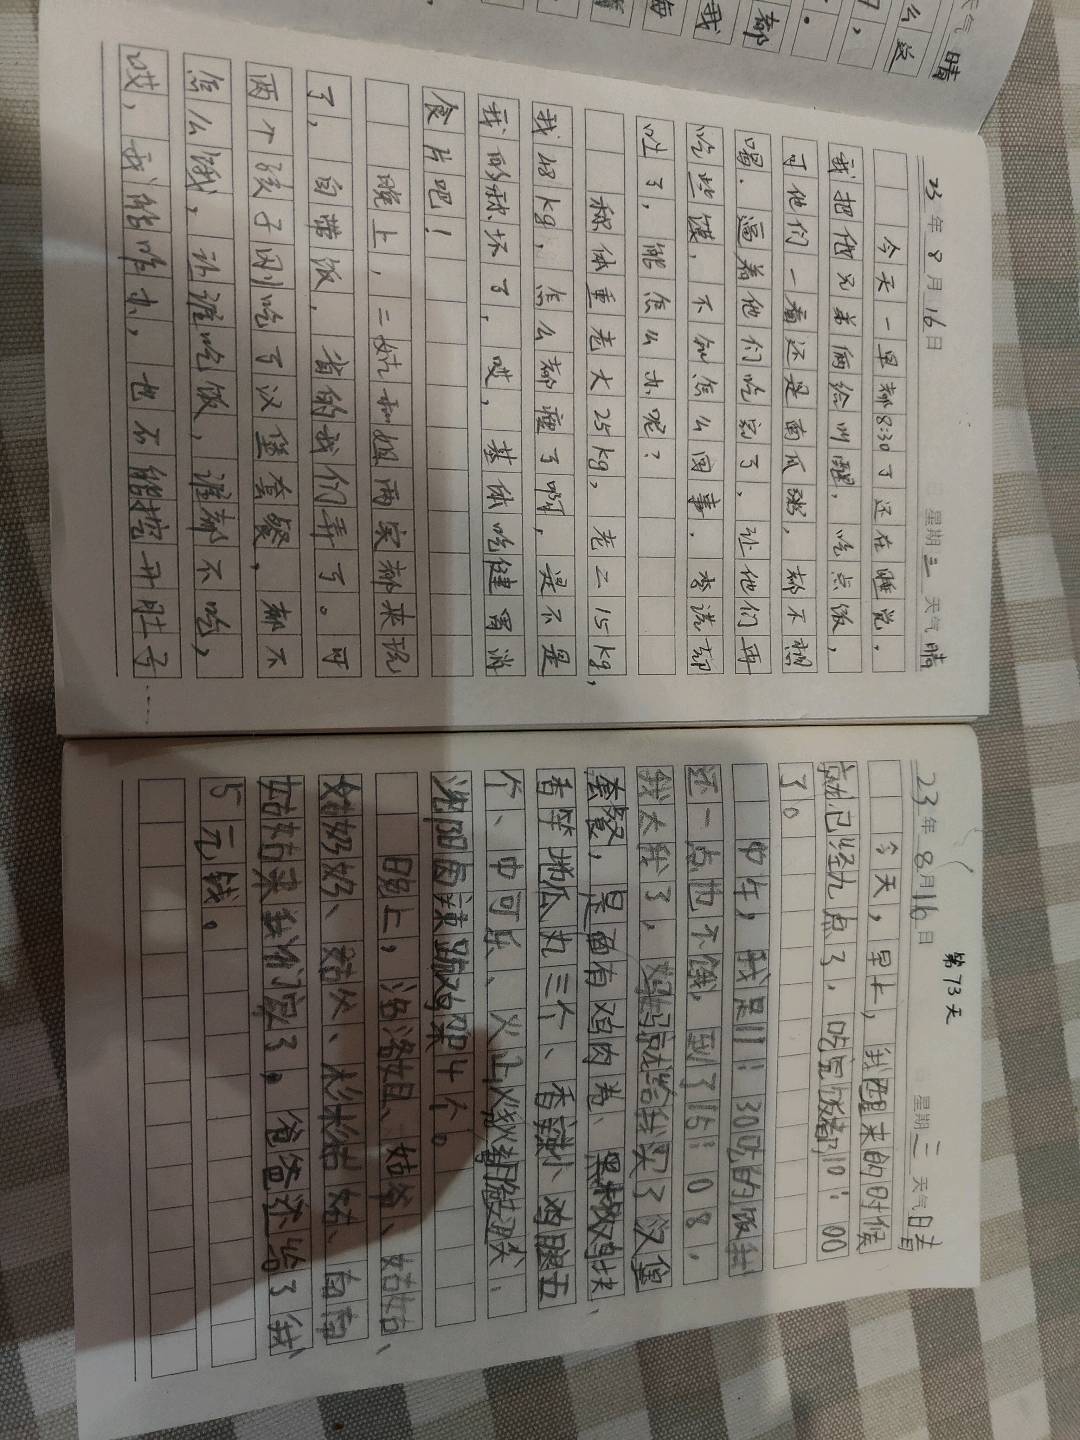 天气 晴
么这
都
我
海
23年8月16日 星期三 天气晴
今天一早都8:30了还在睡觉.
我把他兄弟俩给叫醒,吃点饭,
可他们一看还是南瓜粥,都不想
喝.逼着他们吃完了,让他们再
吃些馍,不知怎么回事,李浩却
吐了,能怎么办呢?
称体重老大25kg,老二15kg,
我48kg,怎么都瘦了啊,是不是
我的秤坏了,哎,基本吃健胃消
食片吧!
晚上,二姑和姐两家都来玩
了,自带饭,省的我们弄了。可
两个孩子因吃了汉堡套餐,都不
怎么饿,让谁吃饭,谁都不吃,
哎,我能咋办,也不能撬开肚子
……
第73天
23年8月16日 星期三 天气晴
今天,早上,我醒来的时候
就已经九点了,吃完饭都10:00
了。
中午,我是11:30吃的饭我
还一点也不饿,到了16:08,
我太我了,妈妈就给我买了汉堡
套餐,里面有鸡肉卷、黑椒鸡块、
香芋地瓜丸三个、香辣小鸡腿五
个、中可乐、
香辣 鸡架4个。
晚上,洛洛姐、姑爷、姑姑、
奶奶、姑父、 姑、南南
姑姑来我们家了,爸爸还给了我
5元钱。